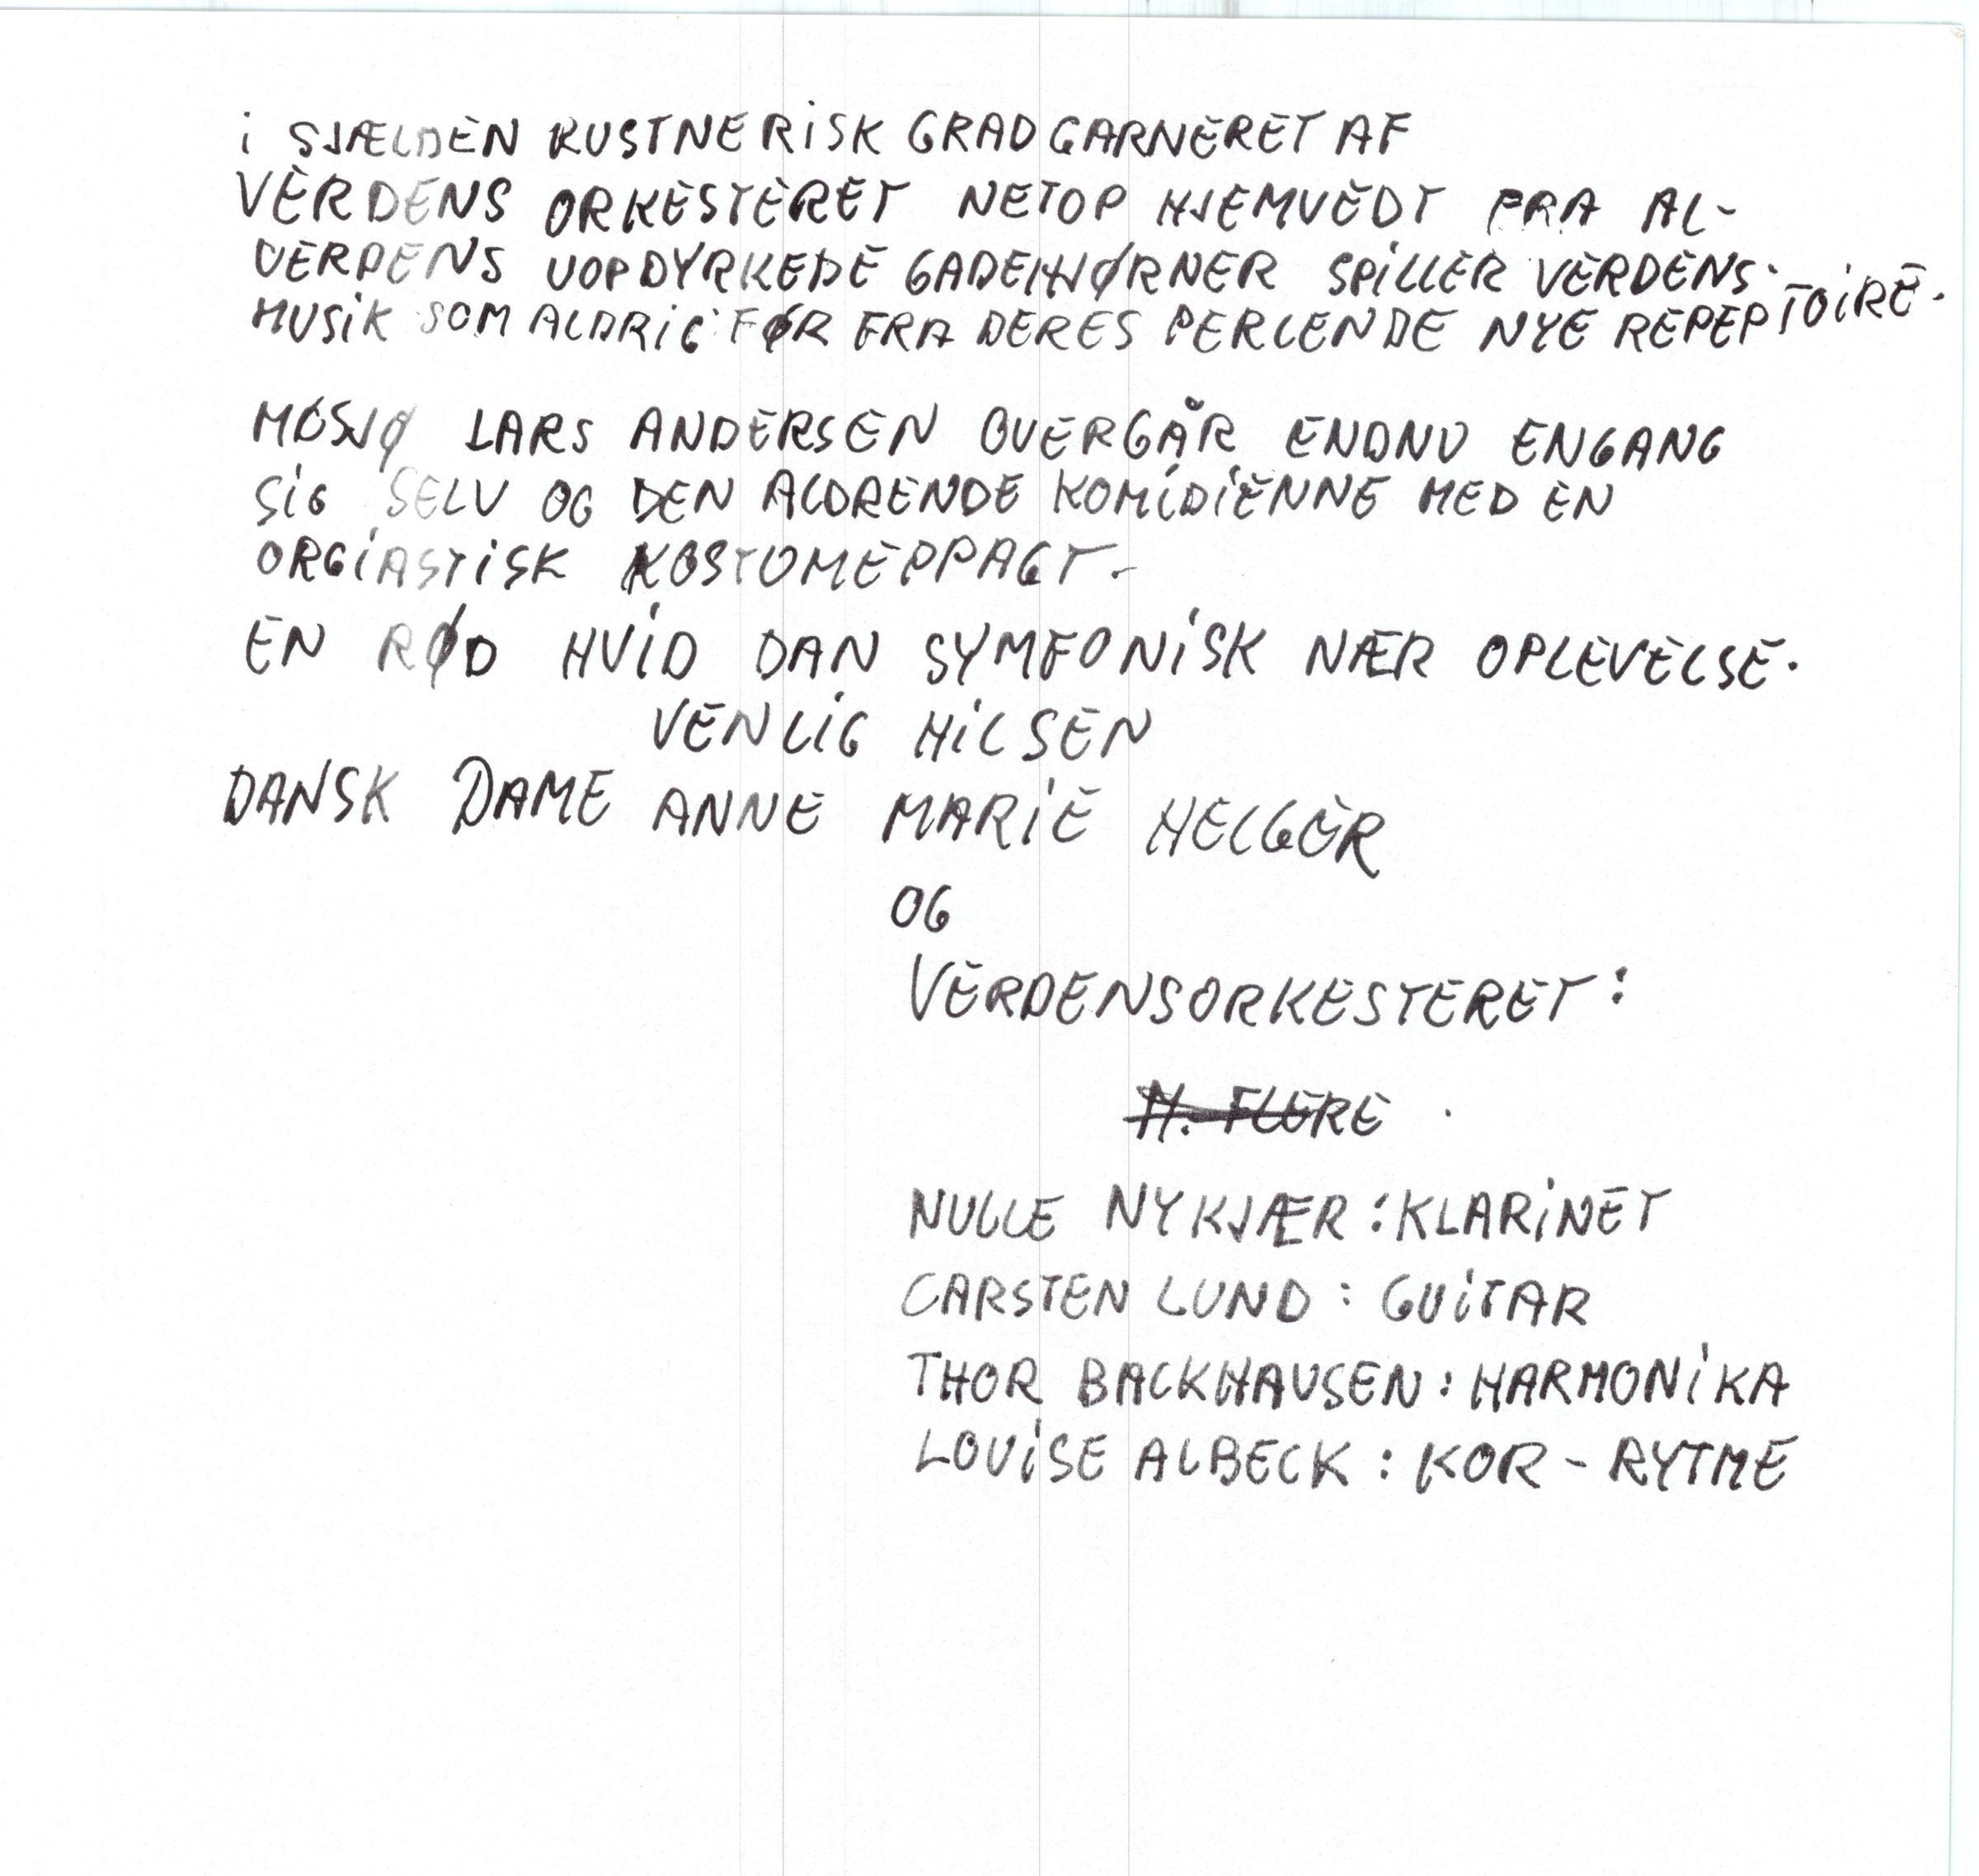 i SJÆLDEN KUSTNERISK GRAD GARNERET AF
VERDENS ORKESTERET NETOP HJEMVEDT FRA AL-
VERDENS UOPDYRKEDE GADEHJØRNER SPILLER VERDENS-
MUSIK SOM ALDRIG FØR FRA DERES PERLENDE NYE REPEPTOIRE.
MØSJØ LARS ANDERSEN OVERGÅR ENDNU ENGANG
SIG SELV OG DEN ALDRENDE KOMIDIENNE MED EN
ORGIASTISK KOSTUMEPPAGT-
EN RØD HVID DAN SYMFONISK NÆR OPLEVELSE.
VENLIG HILSEN
DANSK DAME ANNE MARIE HELGER
OG
VERDENSORKESTERET:
M. FLERE
NULLE NYKJÆR: KLARINET
CARSTEN LUND: GUITAR
THOR BACKHAUSEN: HARMONIKA
LOUISE ALBECK: KOR - RYTME